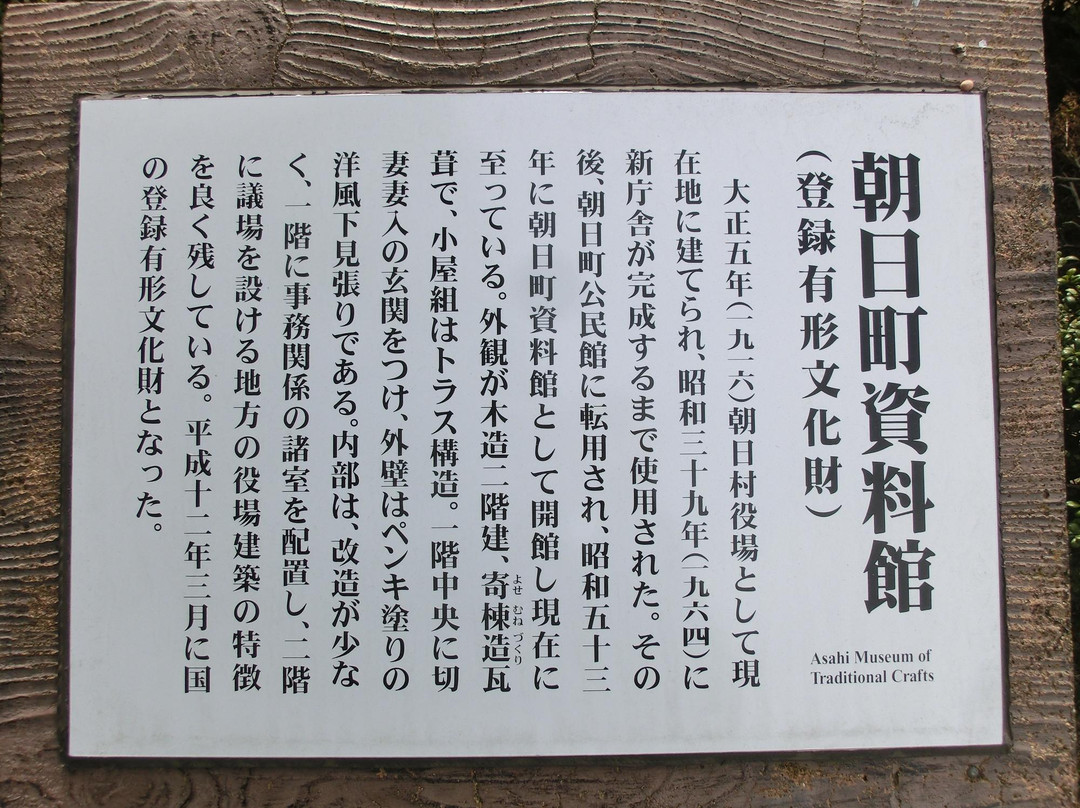 朝日町資料館
(登録有形文化財)
Asahi Museum of
Traditional Crafts
大正五年(一九一六)朝日村役場として現
在地に建てられ、昭和三十九年(一九六四)に
新庁舎が完成するまで使用された。その
後、朝日町公民館に転用され、昭和五十三
年に朝日町資料館として開館し現在に
至っている。外観が木造二階建、寄棟造瓦
よせ むね づくり
葺で、小屋組はトラス構造。一階中央に切
妻妻入の玄関をつけ、外壁はペンキ塗りの
洋風下見張りである。内部は、改造が少な
く、一階に事務関係の諸室を配置し、二階
に議場を設ける地方の役場建築の特徴
を良く残している。平成十二年三月に国
の登録有形文化財となった。